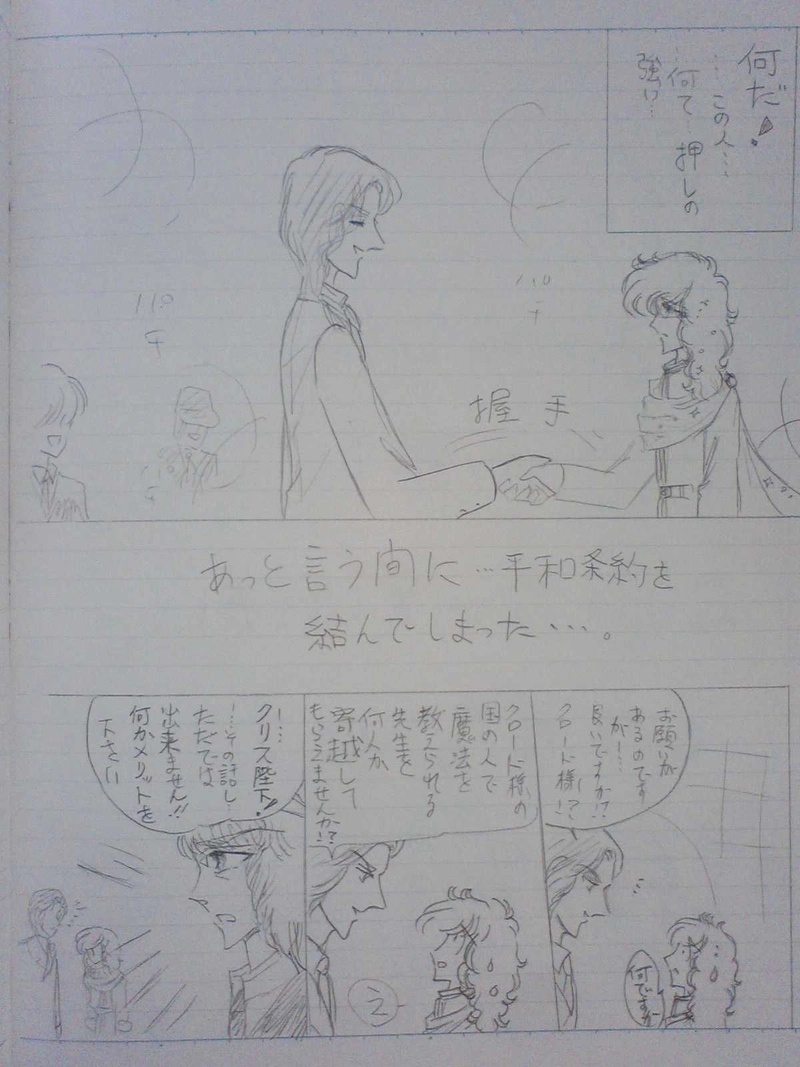 何だ!
…この人…
…何て…押しの
強い…
パチ
握手
パチ
パチ
あっと言う間に…平和条約を
結んでしまった…。
お願いが
あるのです
がー…
良いですか!?
クロード様!?
何ですか
クロード様の
国の人で
魔法を
教えられる
先生を
何人か
寄越して
もらえませんか!?
え
クリス陛下!
ー…その話し…
ただでは
出来ません!!
何かメリットを
下さい